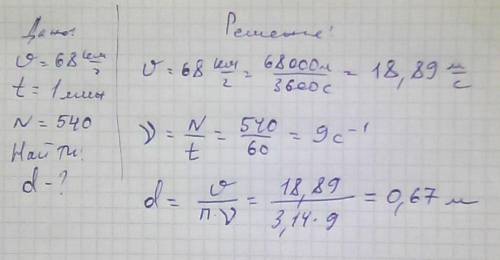 Дано:
υ = 68 км/г
t = 1 мин
N = 540
Найти:
d - ?
Решение:
υ = 68 км/г = 68000м/3600с = 18,89 м/с
ν = N/t = 540/60 = 9 с⁻¹
d = υ/п·ν = 18,89/3,14·9 = 0,67 м